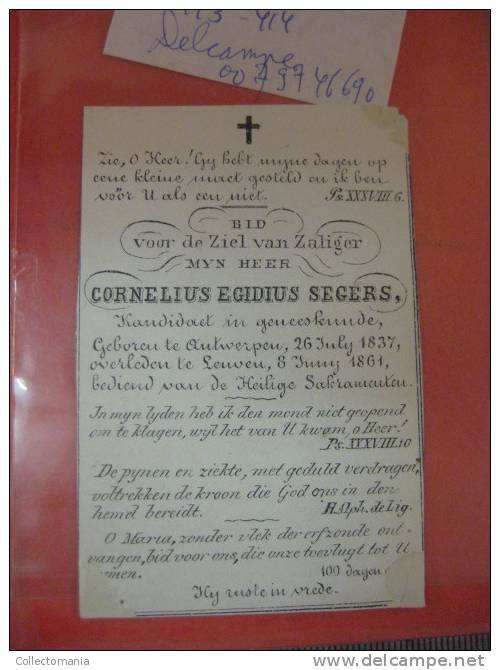 Delcampe
✝
Zie, O Heer! Gy hebt myne dagen op
eene kleine maet gesteld en ik ben
vóór U als een niet. Ps. XXXVIII. 6.
BID
voor de Ziel van Zaliger
MYN HEER
CORNELIUS EGIDIUS SEGERS,
Kandidaet in geneeskunde,
Geboren te Antwerpen, 26 July 1837,
overleden te Leuven, 8 Juny 1861,
bediend van de Heilige Sakramenten.
In myn lyden heb ik den mond niet geopend
om te klagen, wyl het van U kwam, o Heer!
Ps. XXXVIII. 10
De pynen en ziekte, met geduld verdragen,
voltrekken de kroon die God ons in den
hemel bereidt. H. Alph. de Lig.
O Maria, zonder vlek der erfzonde ont-
vangen, bid voor ons, die onze toevlugt tot U
nemen. 100 dagen
Hy ruste in vrede.
Collectomania
delcampe.net